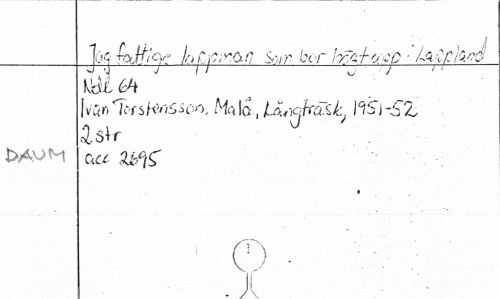 Jag fattige lappman som bor högt upp i Lappland
Ndl 64
Ivan Torstensson, Malå, Långträsk, 1951-52
2 str
DAUM acc 2695